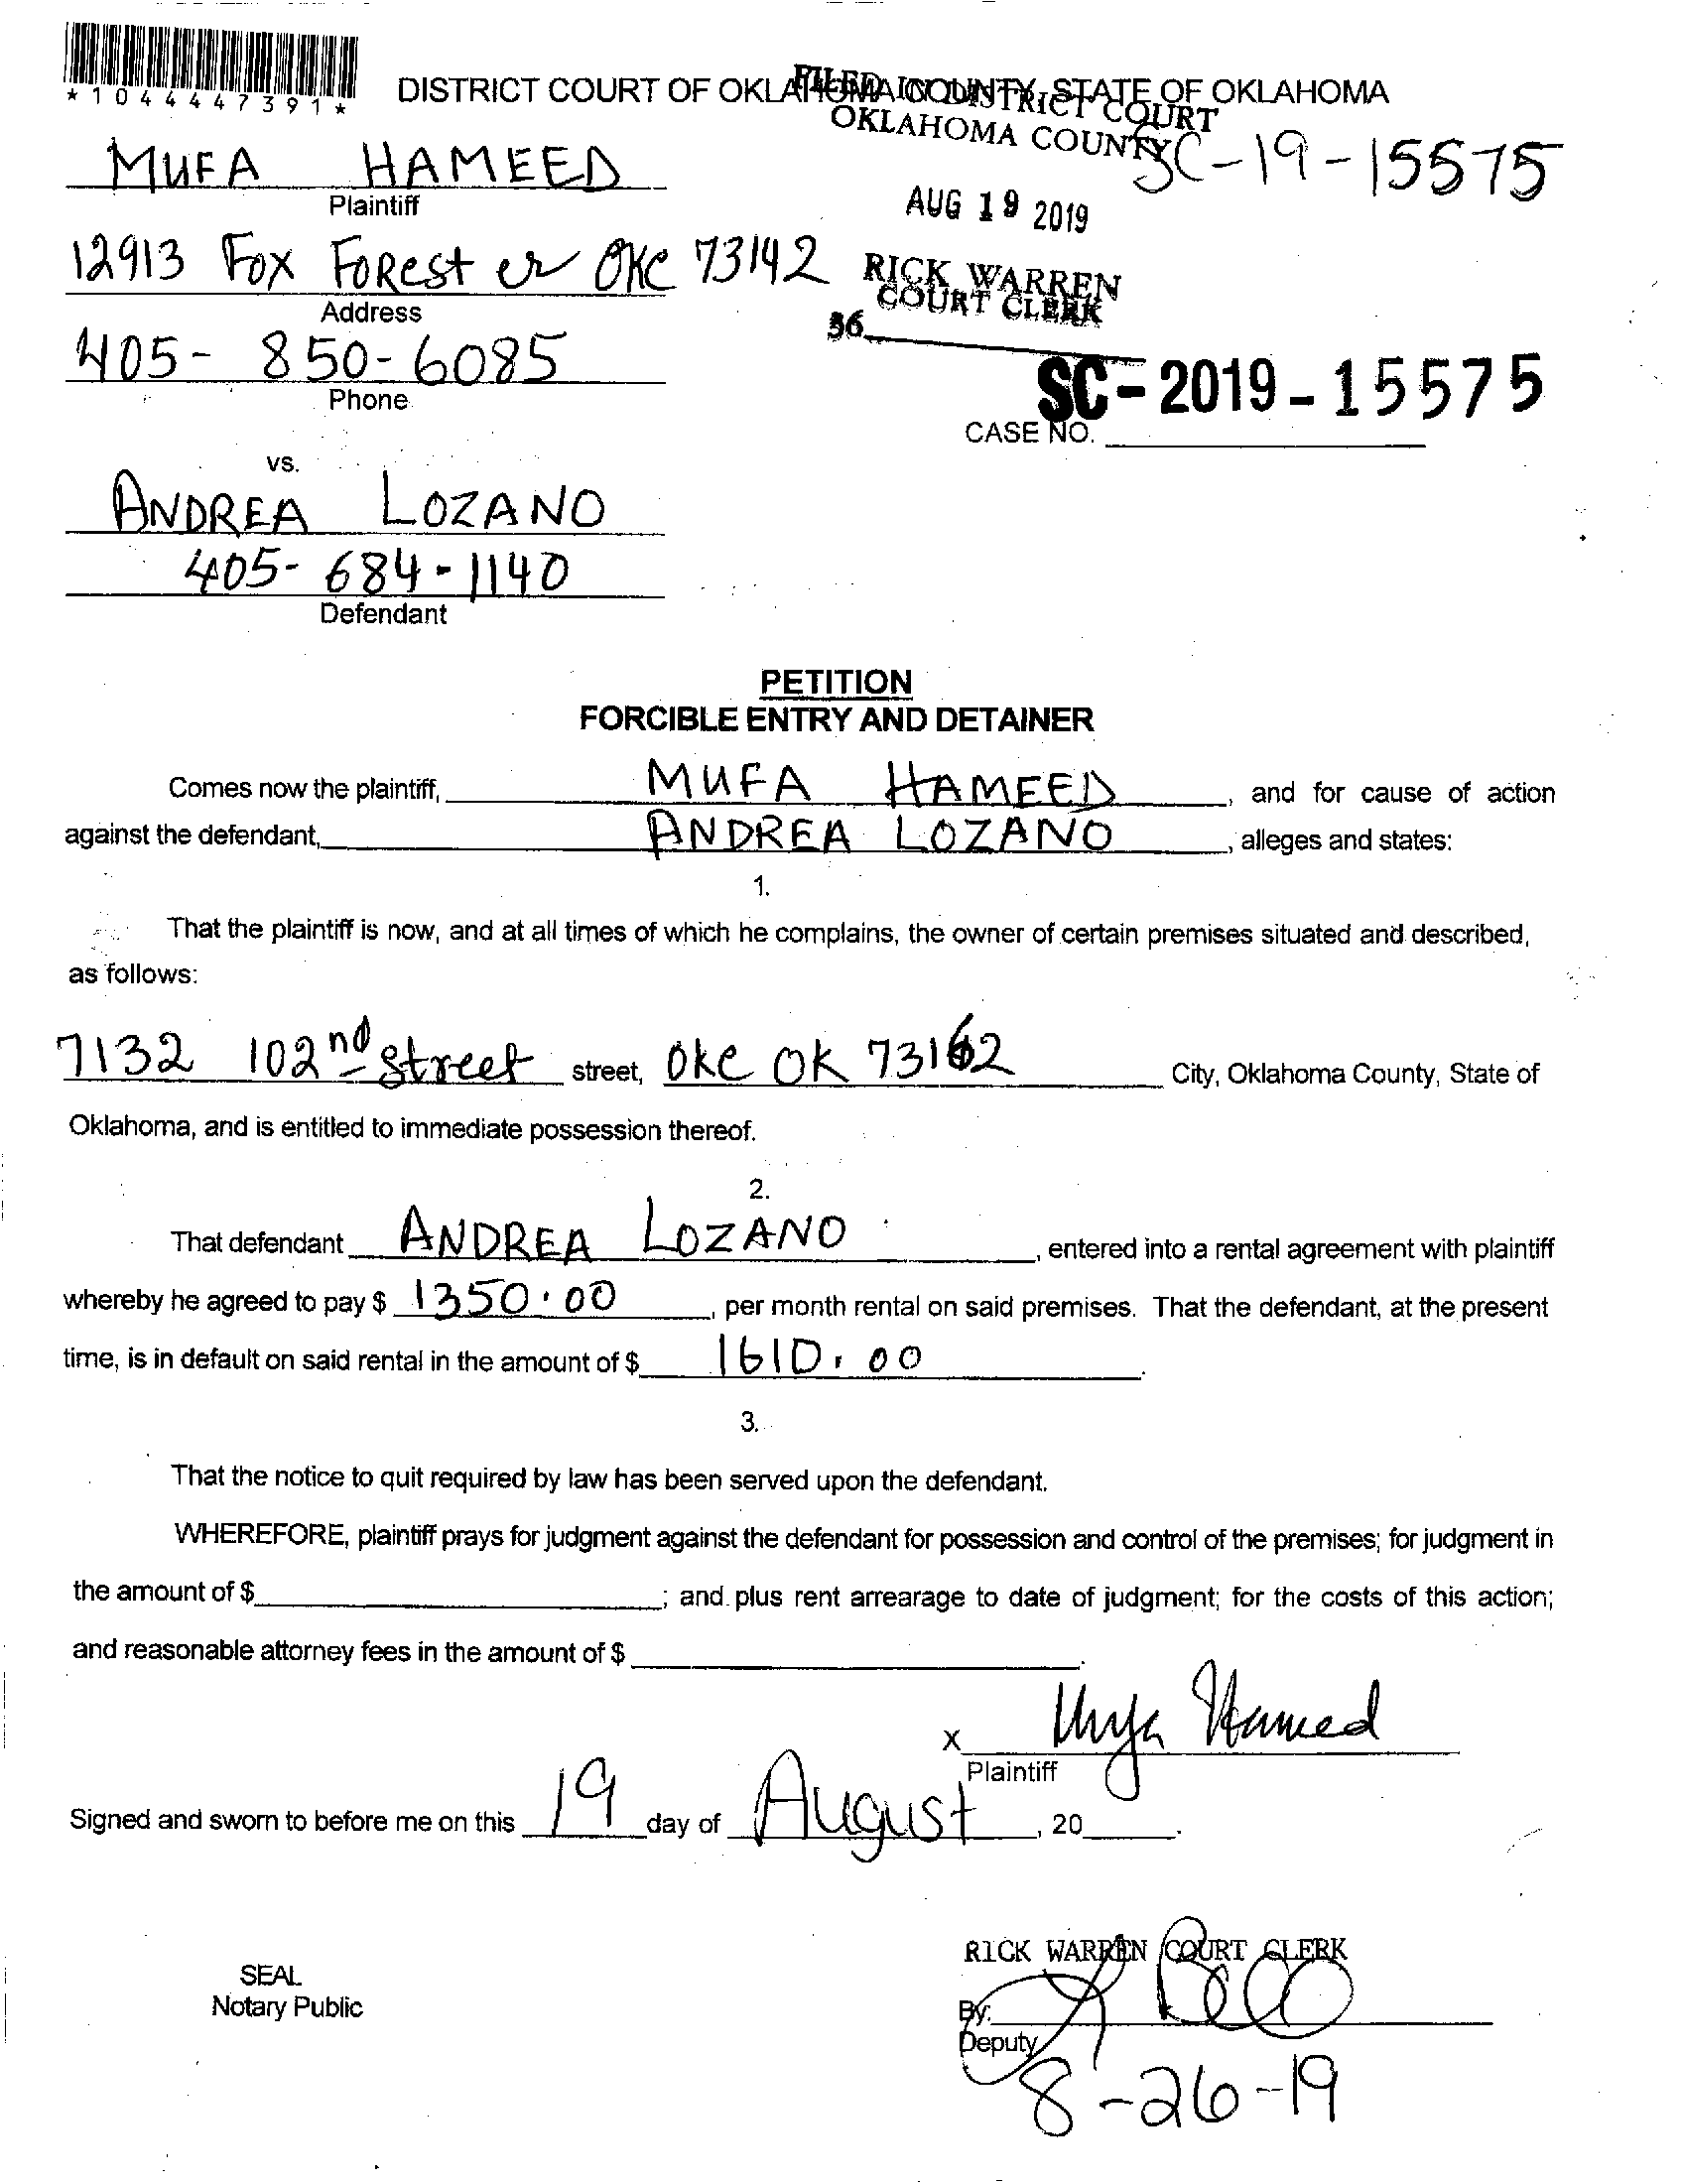 *1044447391*
DISTRICT COURT OF OKLAHOMA COUNTY, STATE OF OKLAHOMA
FILED IN DISTRICT COURT
OKLAHOMA COUNTY
SC-19-15575
MUFA HAMEED
Plaintiff
AUG 19 2019
12913 FOX FOREST cr OKC 73142
Address
RICK WARREN
COURT CLERK
36
405- 850-6085
Phone
SC-2019-15575
CASE NO.
vs.
ANDREA LOZANO
405- 684-1140
Defendant
PETITION
FORCIBLE ENTRY AND DETAINER
Comes now the plaintiff, MUFA HAMEED, and for cause of action
against the defendant, ANDREA LOZANO, alleges and states:
1.
That the plaintiff is now, and at all times of which he complains, the owner of certain premises situated and described,
as follows:
7132 102nd Street street, OKC OK 73162 City, Oklahoma County, State of
Oklahoma, and is entitled to immediate possession thereof.
2.
That defendant ANDREA LOZANO, entered into a rental agreement with plaintiff
whereby he agreed to pay $ 1350.00, per month rental on said premises. That the defendant, at the present
time, is in default on said rental in the amount of $ 1610.00.
3.
That the notice to quit required by law has been served upon the defendant.
WHEREFORE, plaintiff prays for judgment against the defendant for possession and control of the premises; for judgment in
the amount of $ ; and plus rent arrearage to date of judgment; for the costs of this action;
and reasonable attorney fees in the amount of $ .
x Mufa Hameed
Plaintiff
Signed and sworn to before me on this 19 day of August, 20 .
RICK WARREN COURT CLERK
SEAL
Notary Public
By:
Deputy
8-26-19